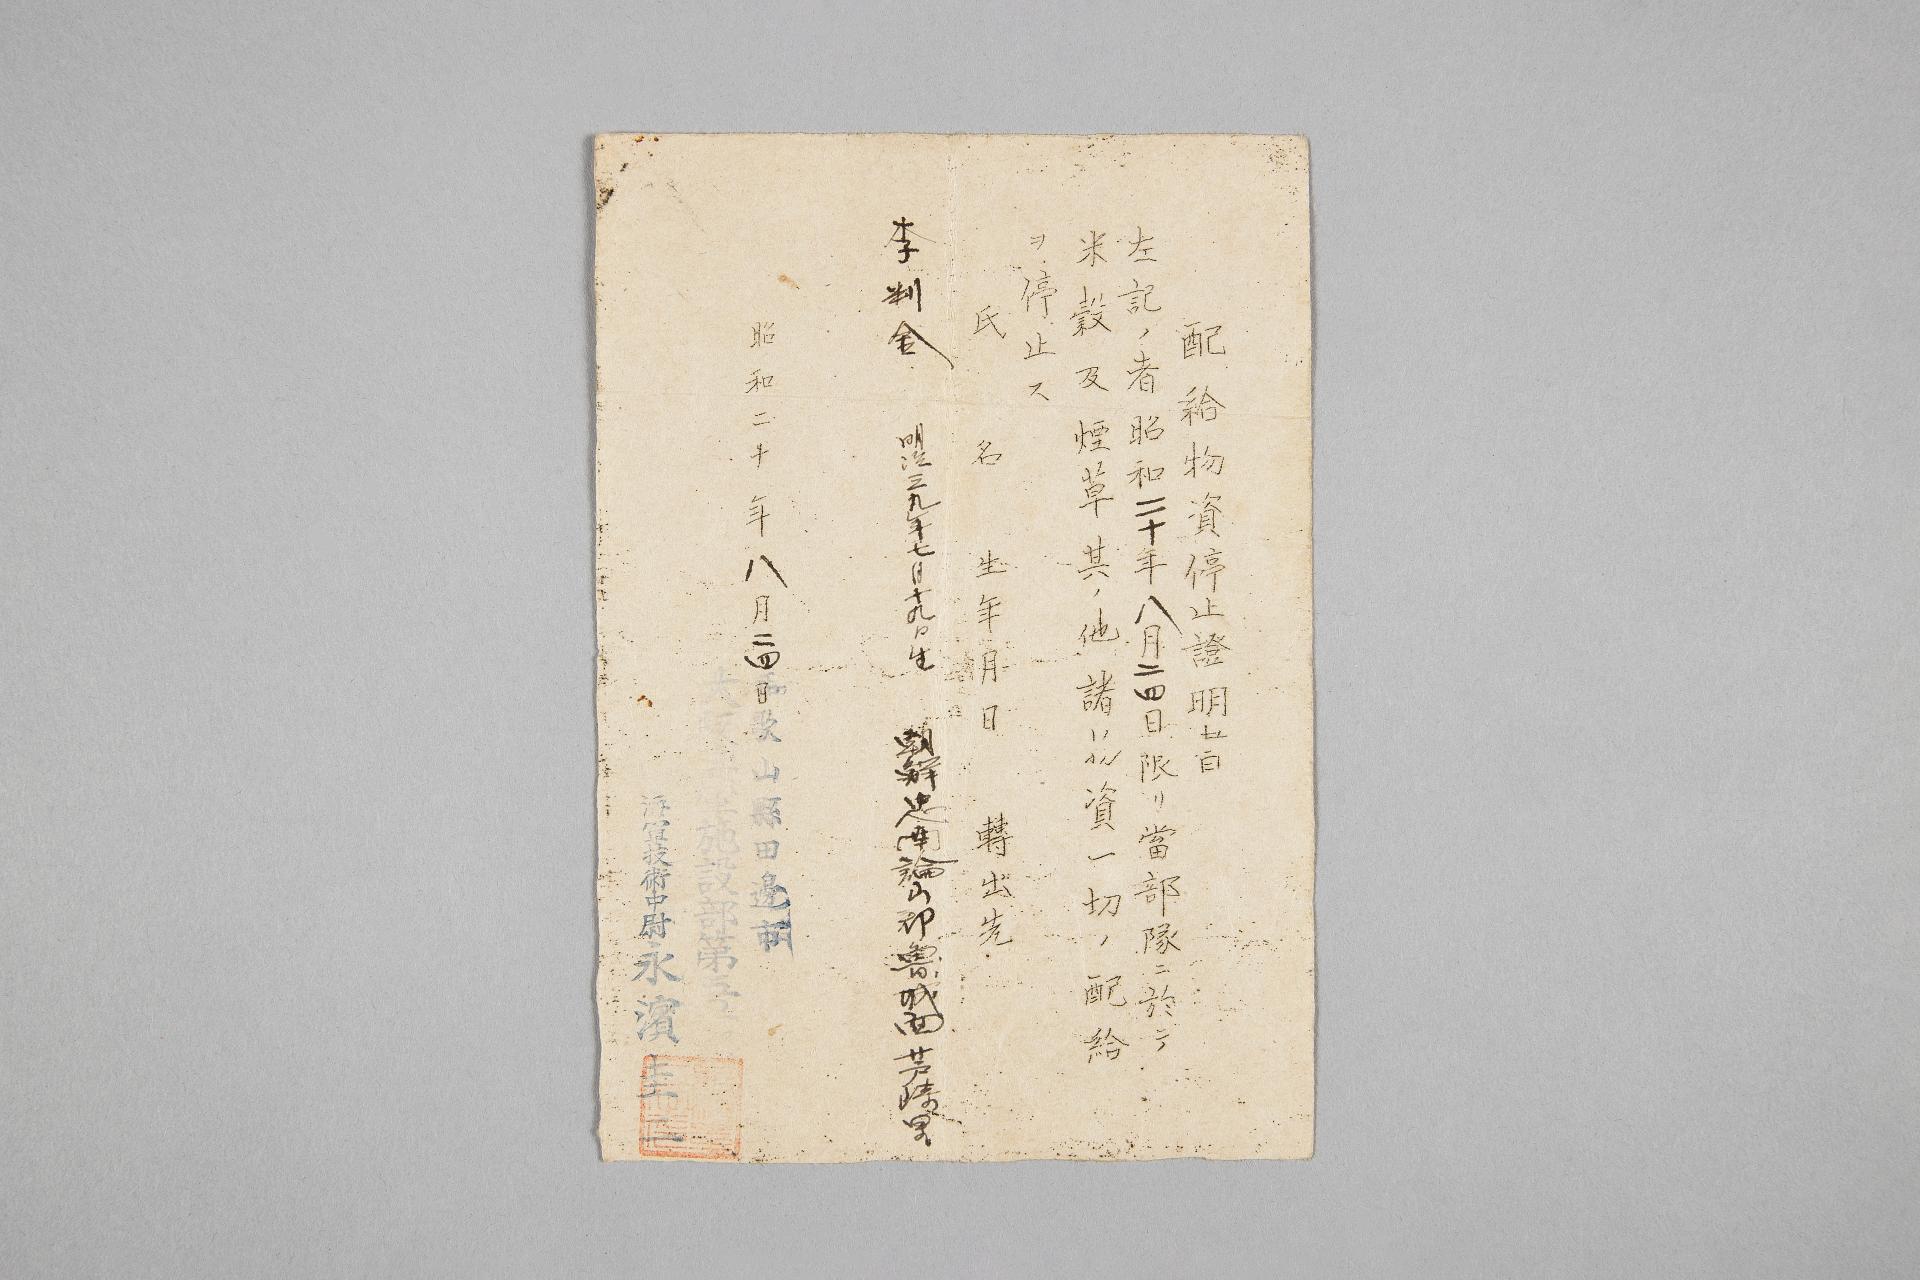 配給物資停止證明書
左記ノ者昭和二十年八月二四日限リ當部隊ニ於テ
米穀及煙草其ノ他諸物資一切ノ配給
ヲ停止ス
氏名 生年月日 轉出先
李判金 明治三九年七月十九日生 朝鮮忠南論山郡魯城面芦峙里
昭和二十年八月二四日
和歌山縣田邊市
施設部第
海軍技術中尉 永濱